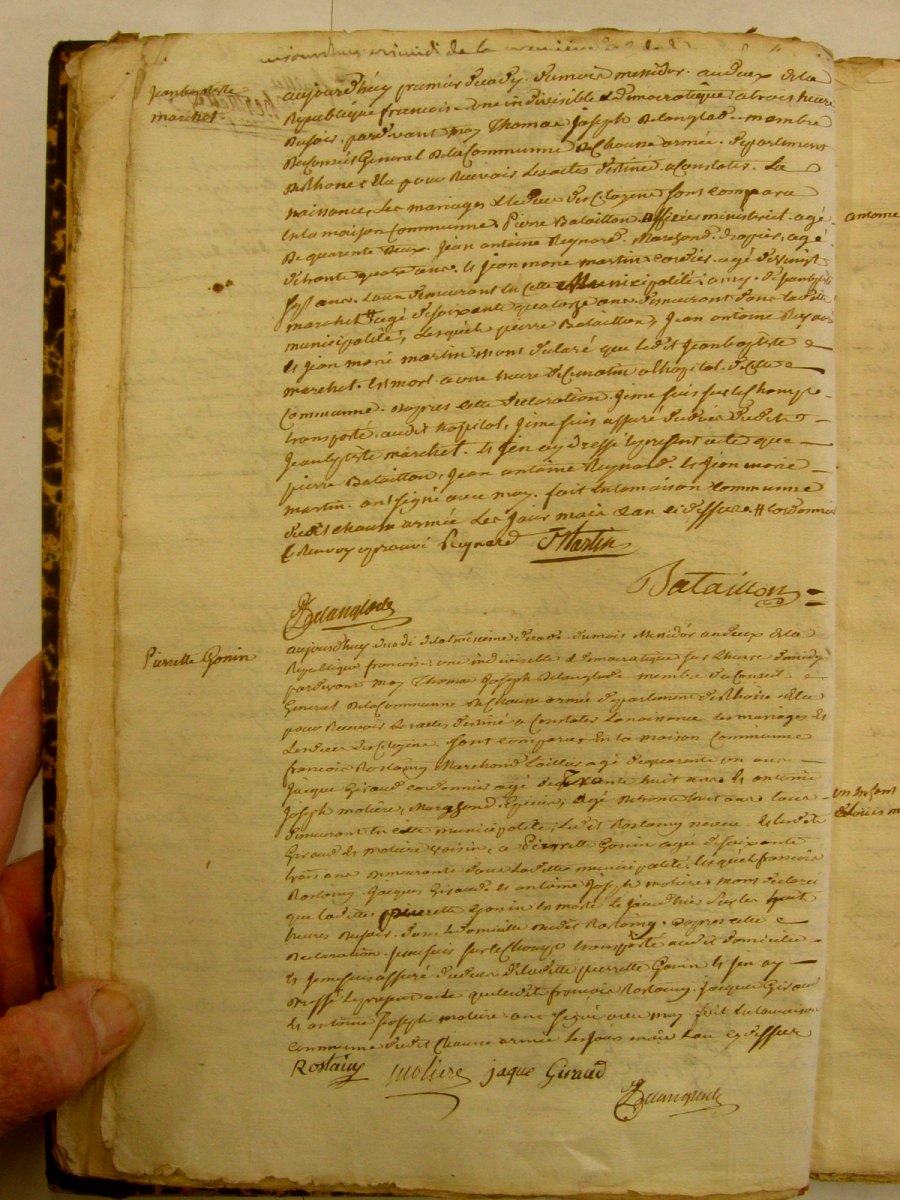 jean baptiste
marchet
aujourdhuy premier decady du mois mesidor an deux de la
Republique francoise une indivisible & democratique a trois heure
Du soir, pardevant moy Thomas Joseph Delanglade membre
Du Conseil General De la Commune De Chaune armée, departement
De Rhone, Elu pour Recevoir Les actes destiné a Constater La
naissance, Les mariages & le deces des Citoyens sont comparu
En la maison Commune, Pierre Bataillon officier ministeriel agé
De quarente deux, Jean antoine Reynard Marchand drapier, agé
de trente quatre ans, & jean marie martin cordier agé de vingt
sept ans, Tous demeurant En cette Municipalité
marchet # agé de soixante quatorze ans demeurant dans la ditte
municipalité, Lesquels pierre Bataillon, Jean antoine Reynard
& jean marie martin mont declaré que le dit Jean baptiste
marchet Est mort a une heure du matin a lhopital de cette
Commune. daprès cette declaration je me suis sur le champ
transporté audit hopital, je me suis assuré du deces dudit
Jean baptiste marchet. & jen ay dressé le present acte que
pierre Bataillon, Jean antoine Reynard & jean marie
martin ont signé avec moy. fait En la maison Commune
dudit Chaune armée Les jour mois & an ci dessus # cordonnier
& Renvoy approuvé Reynard JMartin
Bataillon
Delanglade
Pierrette Gonin
aujourdhuy duodi de la troisieme decade du mois Mesidor an deux de la
Republique francoise une indivisible & democratique sur Lheure de midy
pardevant moy Thomas Joseph Delanglade membre du Conseil
General De la Commune De Chaune armée Departement De Rhone Elu
pour Recevoir Les actes destiné a Constater La naissance les mariages &
Les deces des Citoyens. sont comparu En la maison Commune
francois Rostaing Marchand agé de quarante un ans
Jacque Giraud cordonnier agé de trente huit ans & antoine
Joseph moliere, Marchand Epicier, agé de trente huit ans tous
demeurant En cette municipalité, Le dit Rostaing neveu & Les dits
Giraud & moliere voisin, a Pierrette Gonin agée de soixante
trois ans demeurante dans La ditte municipalité. lesquel francois
Rostaing Jacques Giraud & antoine Joseph moliere mont declaré
que la ditte pierrette Gonin Est morte le jour dhier sur les huit
heures du soir, dans le domicille dudit Rostaing. daprès cette
declaration je me suis sur le Champ transporté audit domicille
& je me suis assuré du deces de laditte pierrette Gonin & jen ay
dressé le present acte que ledit francois Rostaing, jacque Giraud
& antoine Joseph moliere ont signé avec moy fait En la maison
commune dudit Chaune armée les jour mois & an cy dessus
Rostaing moliere jaque Giraud
Delanglade
antoine
un Enfant